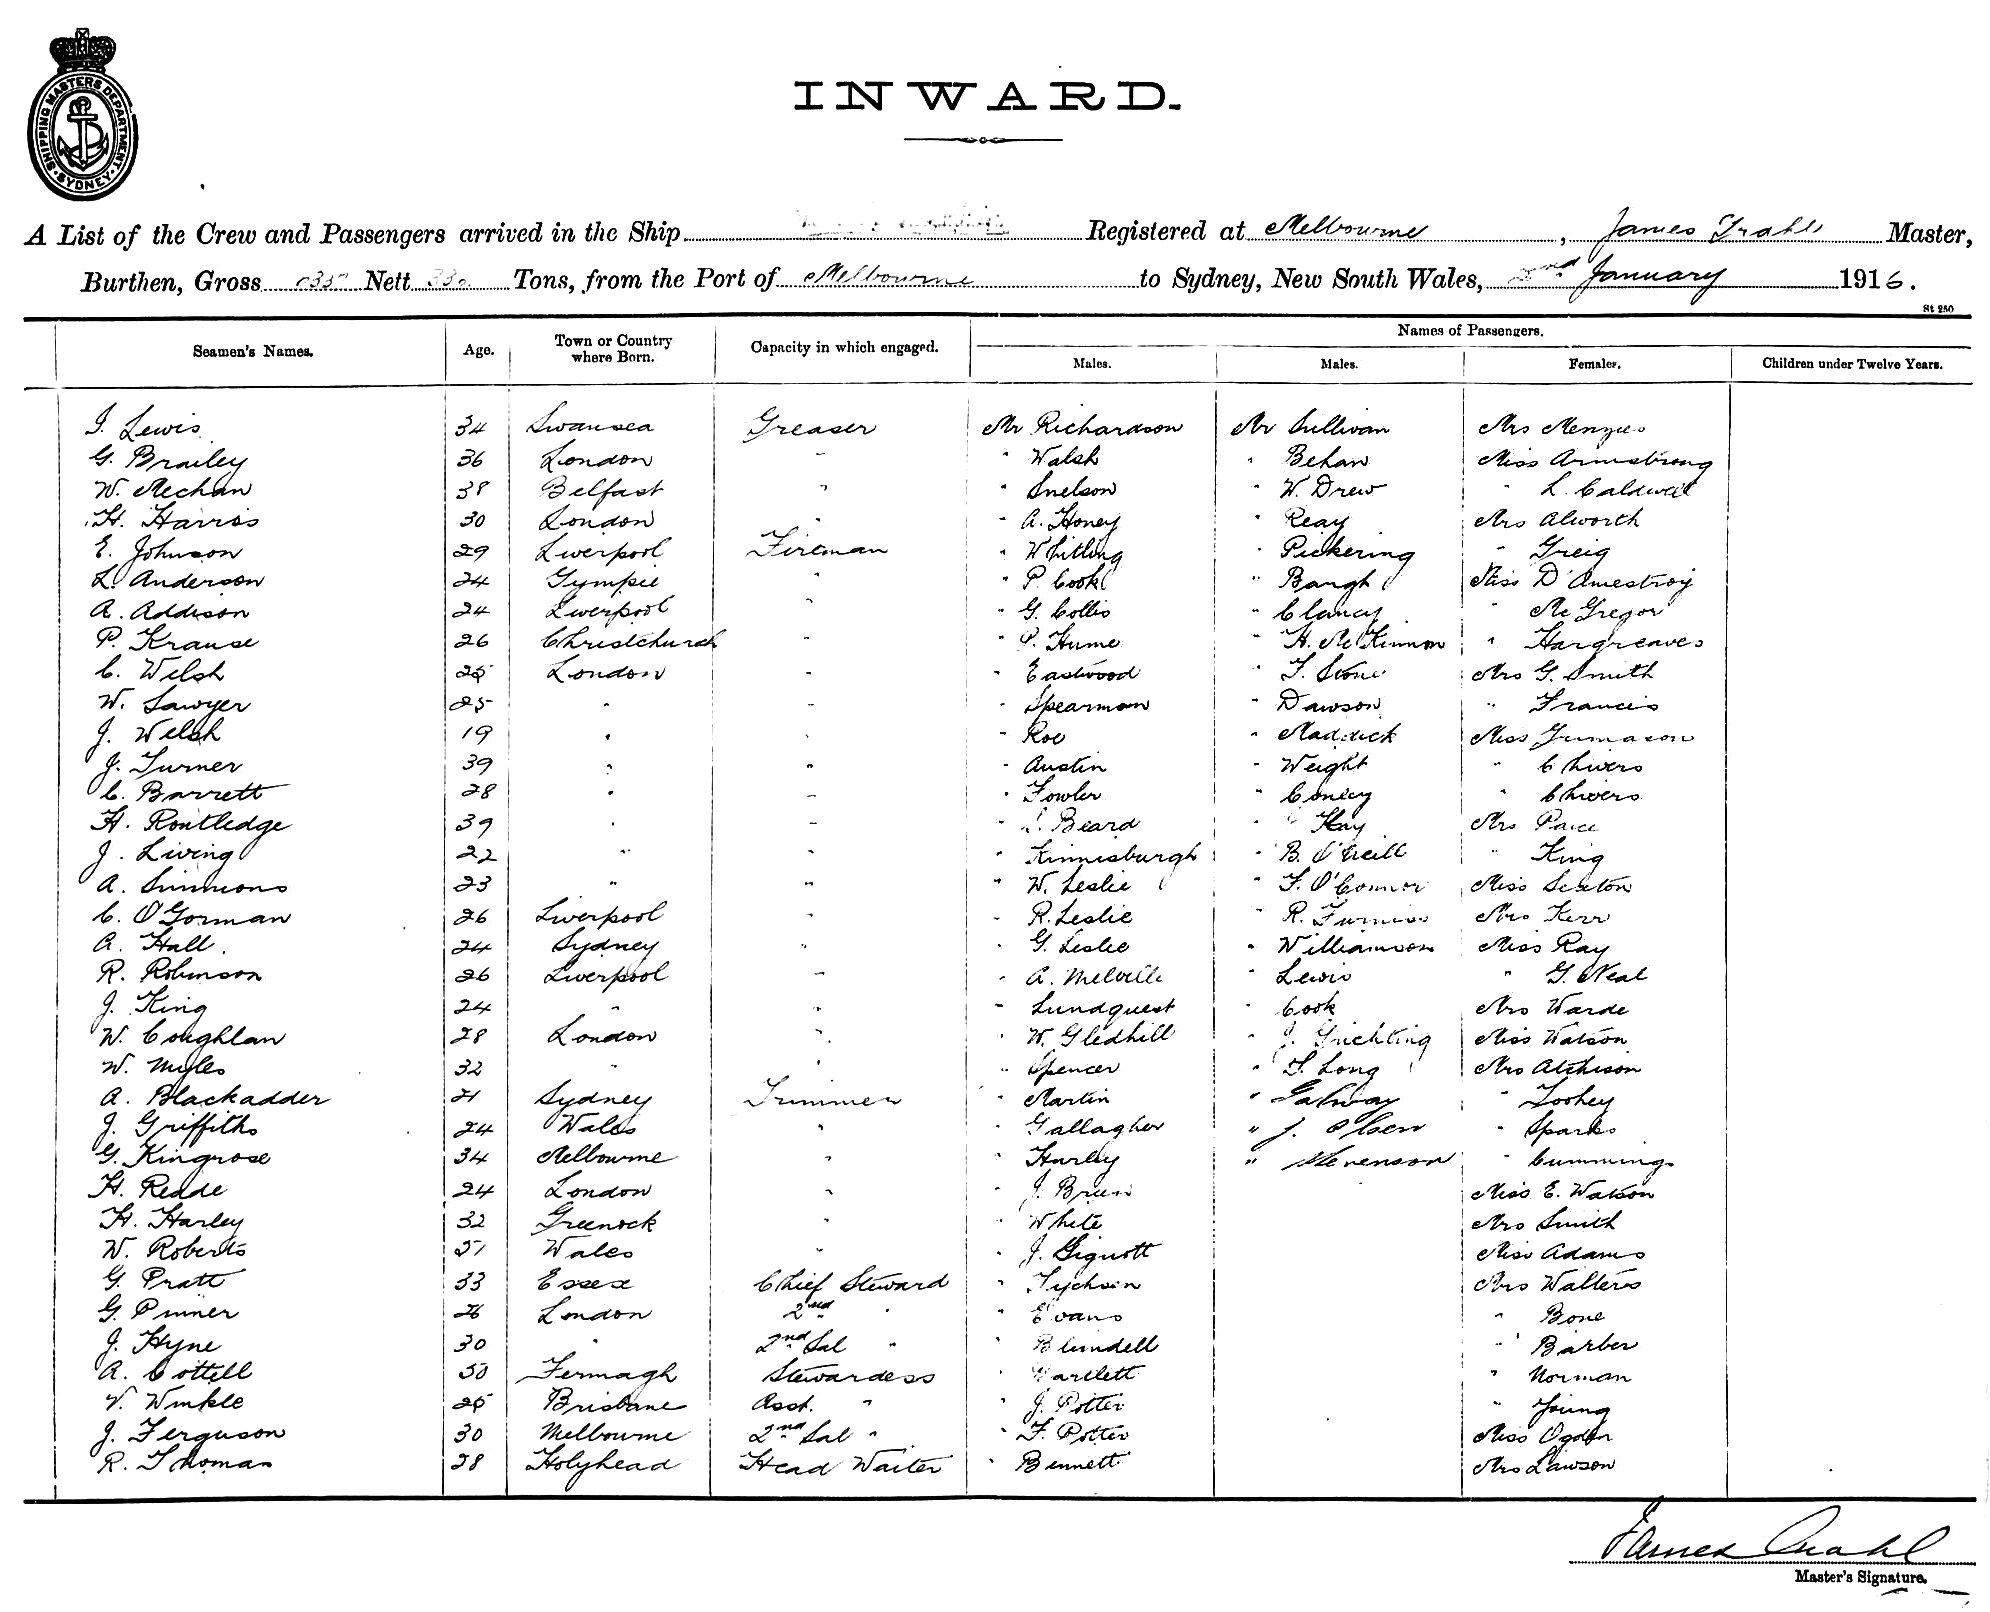 SHIPPING MASTERS DEPARTMENT. SYDNEY.
INWARD.
A List of the Crew and Passengers arrived in the Ship Registered at Melbourne, James Trahl Master,
Burthen, Gross Nett Tons, from the Port of Melbourne to Sydney, New South Wales, 2nd January 1916.
St 250
Names of Passengers.
Seamen's Names. Age. Town or Country where Born. Capacity in which engaged. Males. Males. Females. Children under Twelve Years.
J. Lewis 34 Swansea Greaser Mr Richardson Mr Sullivan Mrs Menzies
G. Brailey 36 London " " Walsh " Behan Miss Armstrong
W. Mechan 38 Belfast " " Snelson " W. Drew " L. Caldwell
H. Harris 30 London " " A. Honey " Reay Mrs Alworth
E. Johnson 29 Liverpool Fireman " Whitling " Pickering " Greig
L. Anderson 24 Gympie " " P. Cook " Baugh Miss D'Amestroy
A. Addison 24 Liverpool " " G. Collis " Clancy " McGregor
P. Krause 26 Christchurch " " P. Hume " H. McKinnon " Hargreaves
C. Welsh 25 London " " Eastwood " F. Stone Mrs G. Smith
W. Sawyer 25 " " " Spearman " Dawson " Francis
J. Welsh 19 " " " Roe " Maddick Miss Grimason
J. Turner 39 " " " Austin " Weight " Chivers
C. Barrett 28 " " " Fowler " Conley " Chivers
H. Routledge 39 " " " Beard " Hay Mrs Paice
J. Living 22 " " " Kinnisburgh " B. O'Neill " King
A. Simmons 23 " " " W. Leslie " F. O'Connor Miss Sexton
C. O'Gorman 26 Liverpool " " R. Leslie " R. Furniss Mrs Kerr
A. Hall 24 Sydney " " G. Leslie " Williamson Miss Ray
R. Robinson 26 Liverpool " " A. Melville " Lewis " G. Neal
J. King 24 " " " Lundquest " Cook Mrs Warde
W. Coughlan 28 London " " W. Gledhill " J. Grichting Miss Watson
W. Myles 32 " " " Spencer " F. Long Mrs Atchison
A. Blackadder 21 Sydney Trimmer " Martin " Galway " Toohey
J. Griffiths 24 Wales " " Gallagher " J. Olsen " Sparks
G. Kingrose 34 Melbourne " " Hurley " Stevenson " Cummings
H. Reade 24 London " " J. Brien Miss E. Watson
H. Harley 32 Greenock " " White Mrs Smith
W. Roberts Wales " " J. Gignott Miss Adams
G. Pratt 33 Essex Chief Steward " Tychsen Mrs Walters
G. Pinner 26 London 2nd " " Evans " Bone
J. Hyne 30 " 2nd Sal " " Blundell " Barber
A. Cottell 50 Fermagh Stewardess " Bartlett " Norman
V. Winkle 25 Brisbane Asst. " " J. Potter " Young
J. Ferguson 30 Melbourne 2nd Sal " " F. Potter Miss Ogden
R. Thomas 28 Holyhead Head Waiter " Bennett Mrs Lawson
James Trahl
Master's Signature.